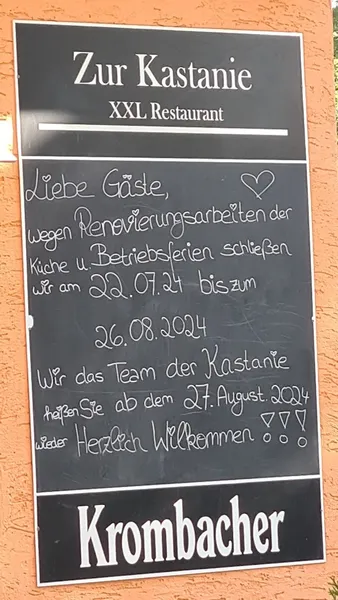 Zur Kastanie
XXL Restaurant
Liebe Gäste,
wegen Renovierungsarbeiten der
Küche u. Betriebsferien schließen
wir am 22.07.24 bis zum
26.08.2024
Wir das Team der Kastanie
heißen Sie ab dem 27. August 2024
wieder Herzlich Willkommen !!!
Krombacher